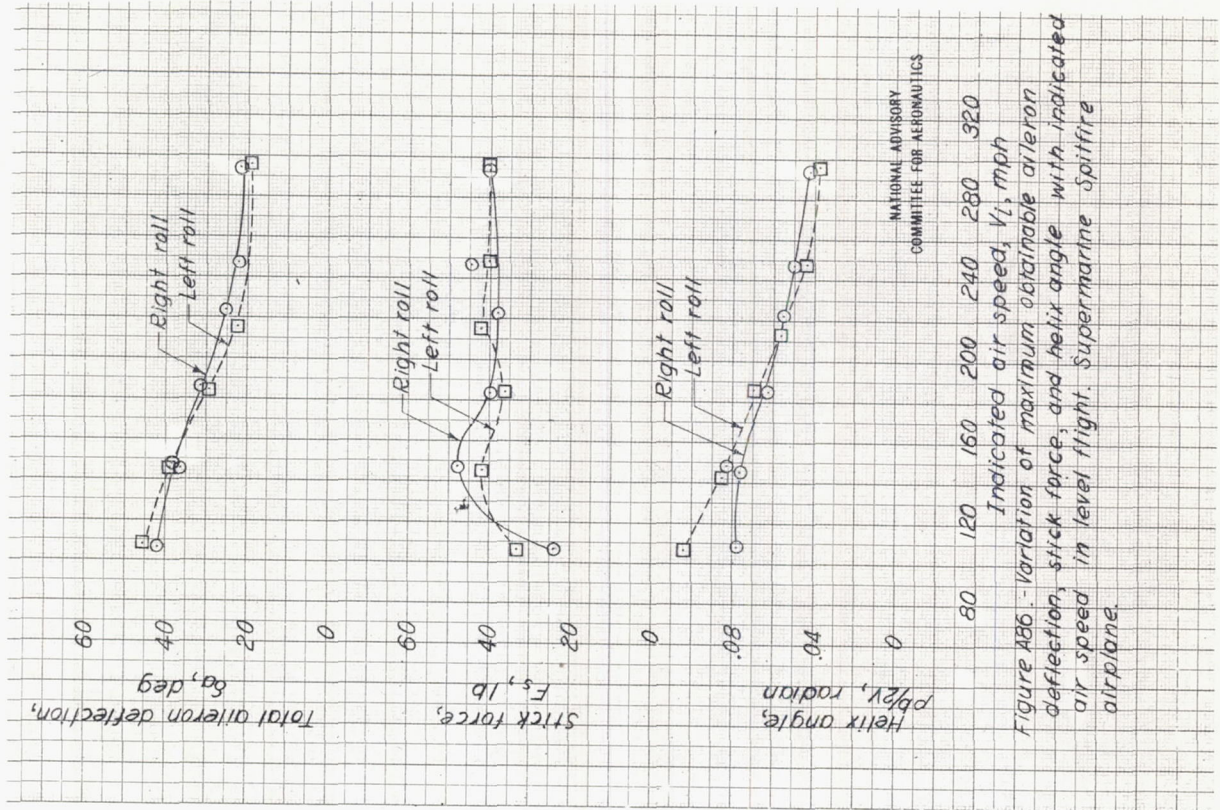 60
40
20
0
Total aileron deflection,
δa, deg
Right roll
Left roll
60
40
20
0
Stick force,
Fs, lb
Right roll
Left roll
.08
.04
0
Helix angle,
pb/2V, radian
Right roll
Left roll
NATIONAL ADVISORY
COMMITTEE FOR AERONAUTICS
80 120 160 200 240 280 320
Indicated air speed, Vi, mph
Figure A86.- Variation of maximum obtainable aileron
deflection, stick force, and helix angle with indicated
air speed in level flight. Supermarine Spitfire
airplane.